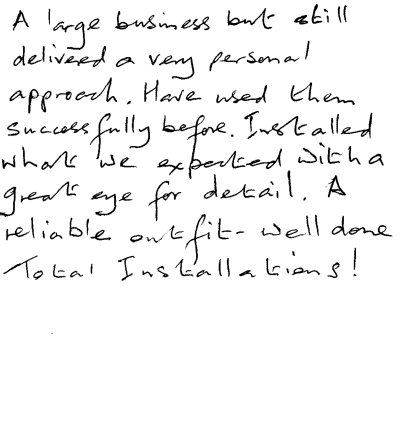 A large business but still
delivered a very personal
approach. Have used them
successfully before. Installed
what we expected with a
great eye for detail. A
reliable outfit - well done
Total Installations!